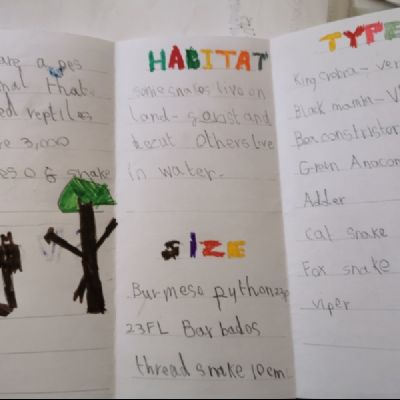 are a pes
nal that
ed reptiles
re 3,000
es O8 snake
HABITAT
some snakes live on
land- forist and
but Others Live
in water.
SIZE
Burmese python
23FL Barbados
thread snake 10cm
TYPE
King Crobra - ver
Black mamba - V
Boa constristor
Green Anacon
Adder
Cat snake
Fox snake
viper